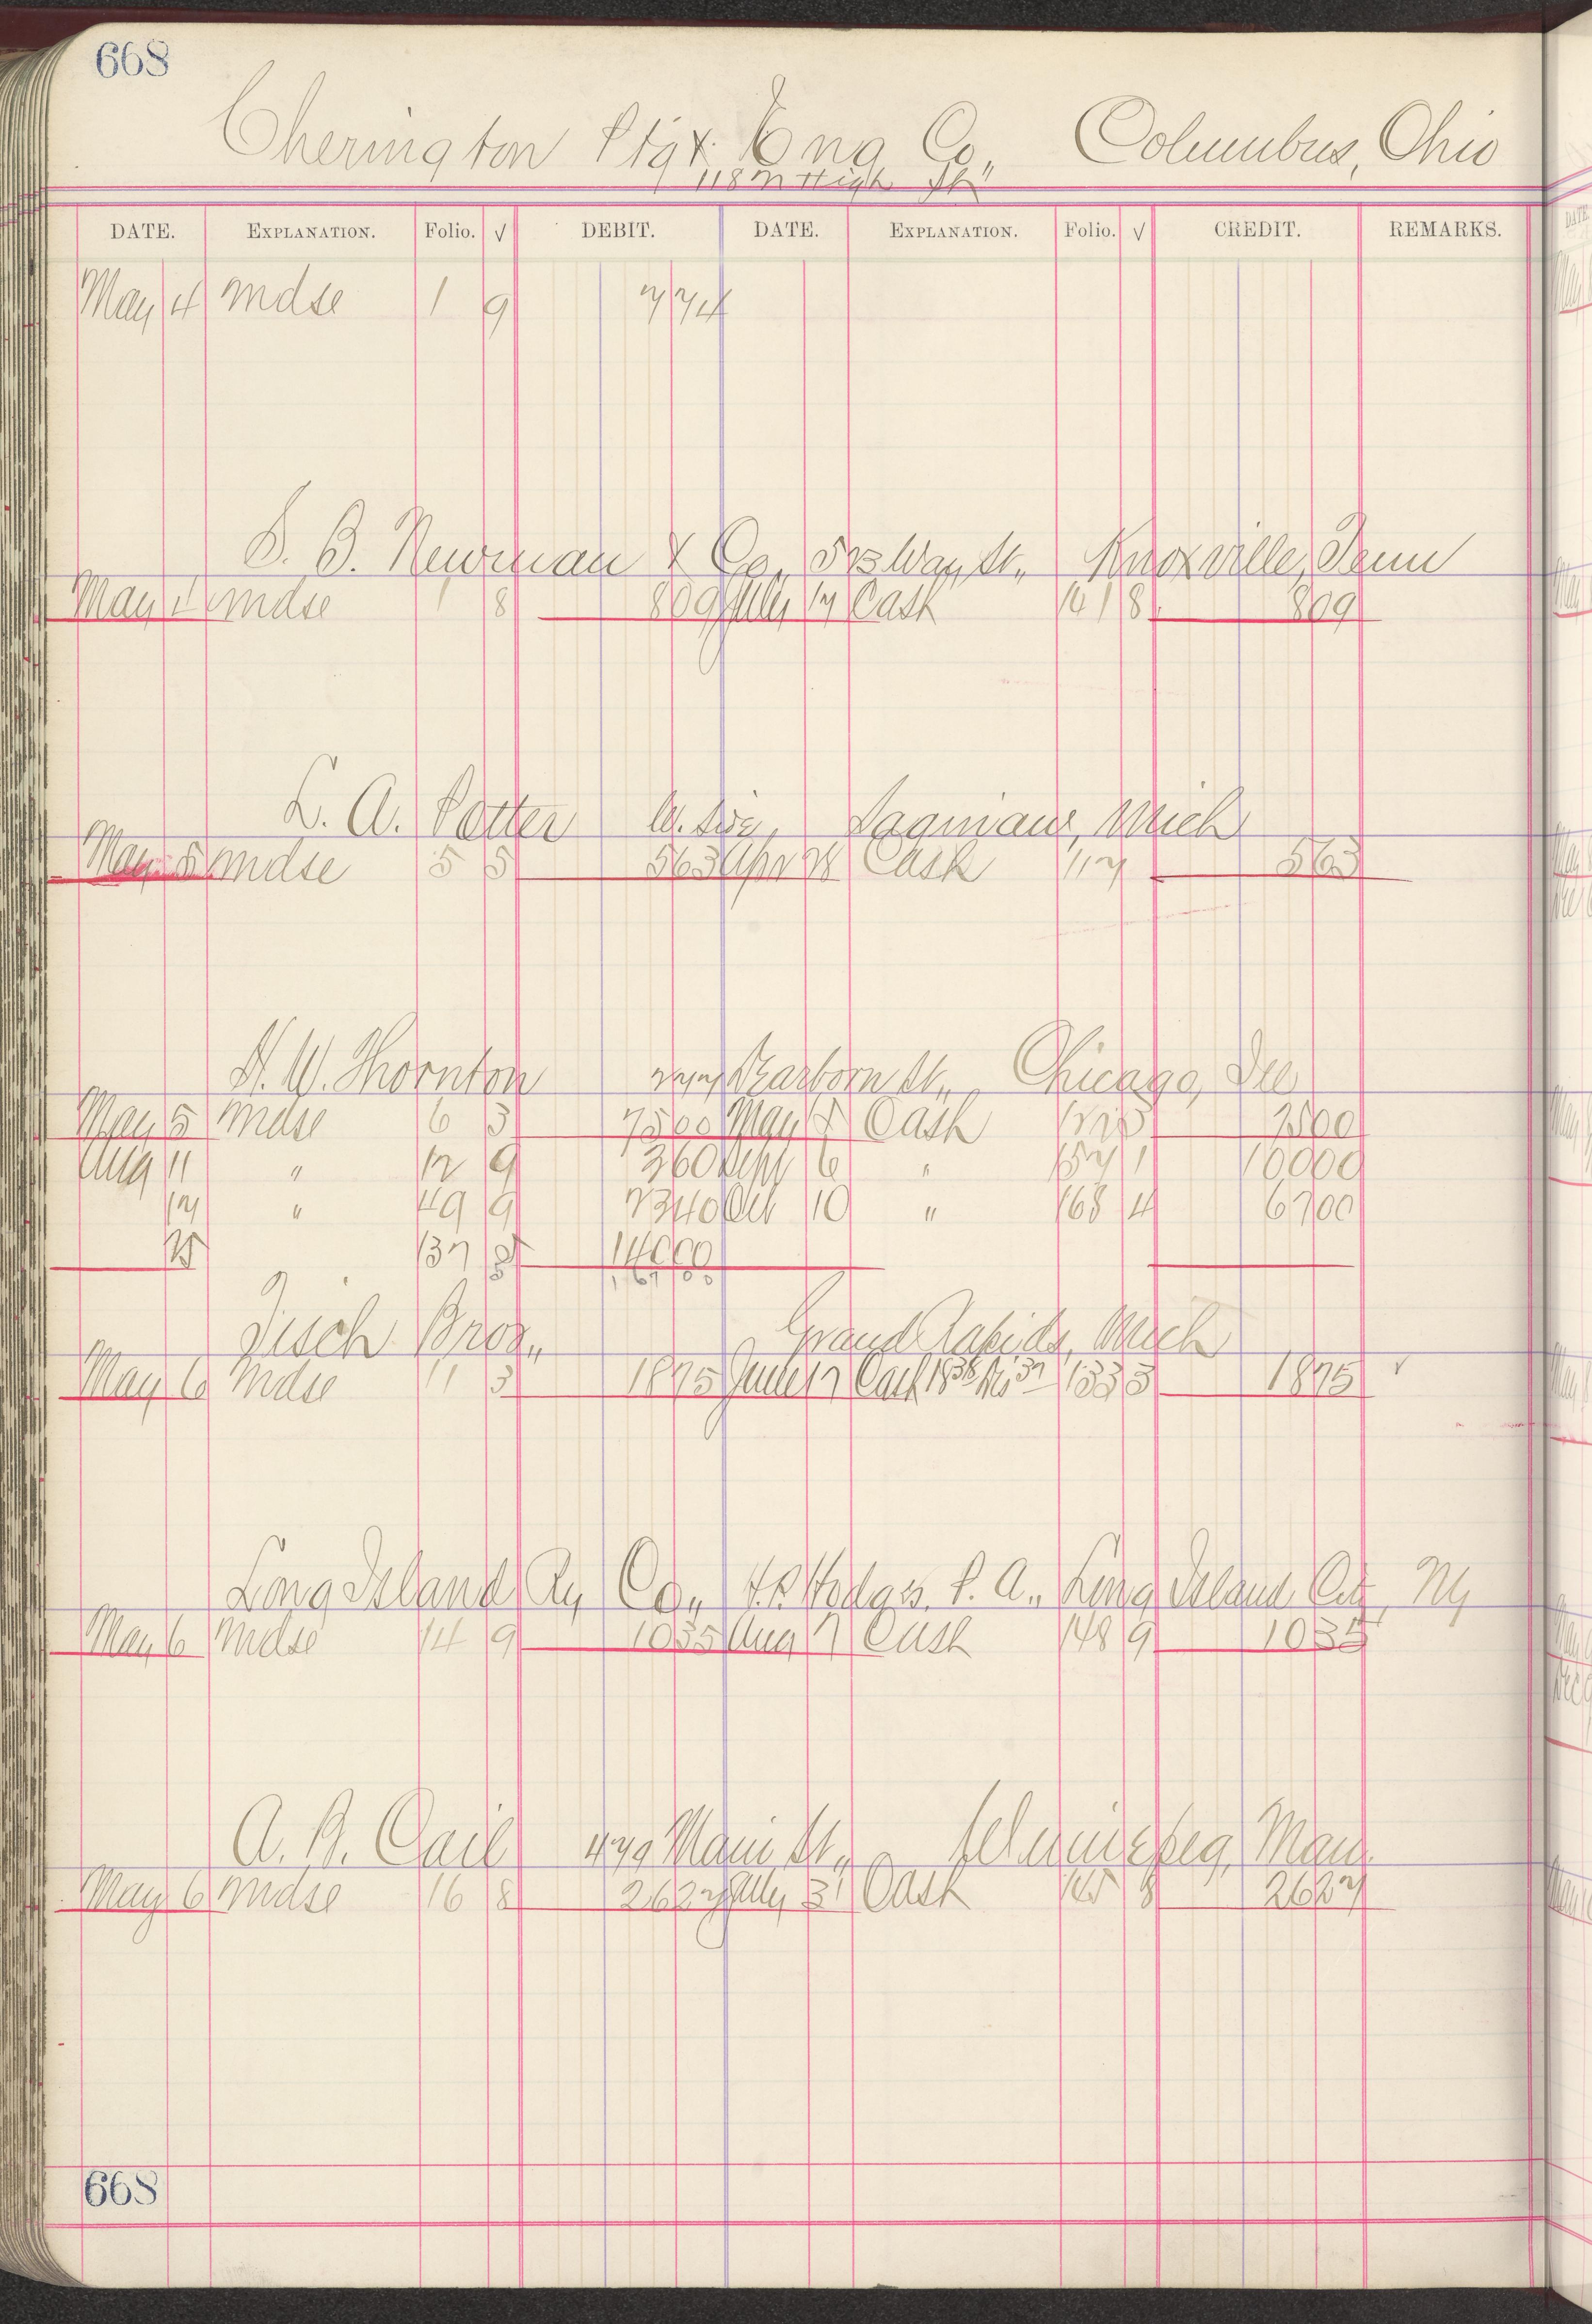 668
Cherington Ptg & Eng Co., Columbus, Ohio
118 N High St"
DATE. EXPLANATION. Folio. √ DEBIT. DATE. EXPLANATION. Folio. √ CREDIT. REMARKS.
May 4 Mdse 1 9 7 74
S. B. Newman & Co., Way St., Knoxville, Tenn
May Mdse 1 8 8 09 July 17 Cash 141 8 8 09
L. A. Potter W. Side, Saginaw, Mich
May 5 Mdse 5 5 5 63 Apr 28 Cash 117 5 63
H. W. Thornton 227 Dearborn St., Chicago, Ill
May 5 Mdse 6 3 75 00 May Cash 75 00
Aug 11 " 12 9 3 60 Sept 6 " 157 1 100 00
17 " 49 9 23 40 Oct 10 " 168 4 67 00
25 137 8 140 00
167 00
Tisch Bros., Grand Rapids, Mich
May 6 Mdse 11 3 18 75 June 17 Cash 18 38 Dis 37 133 3 18 75 √
Long Island Ry Co., Hodges, P. A., Long Island City, NY
May 6 Mdse 14 9 10 35 Aug 7 Cash 148 9 10 35
A. B. Cail 479 Main St., Winnipeg, Man.
May 6 Mdse 16 8 26 27 July 31 Cash 145 8 26 27
668